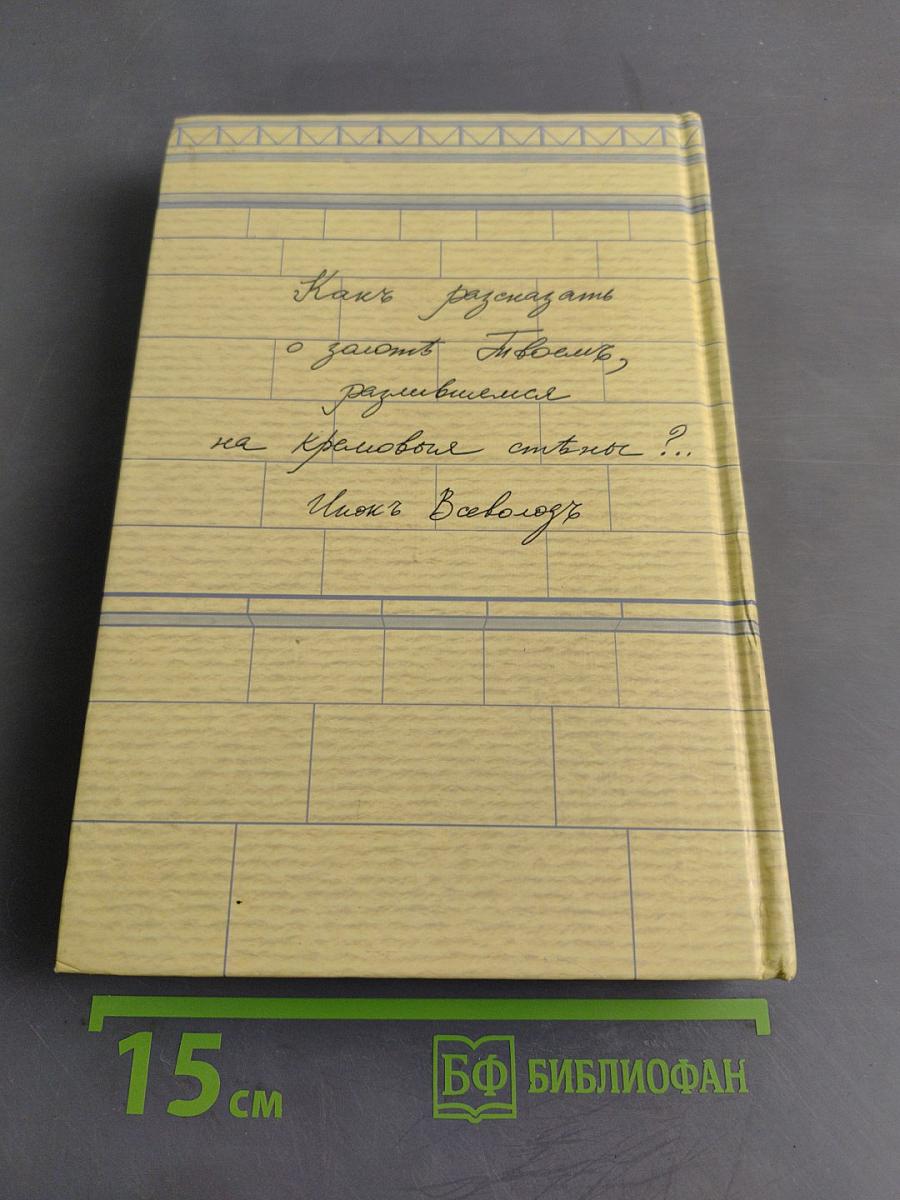 Какъ разсказать
о золотѣ Твоемъ,
разлившемся
на кремовыя стѣны?..
Инокъ Всеволодъ
15 см
БФ БИБЛИОФАН